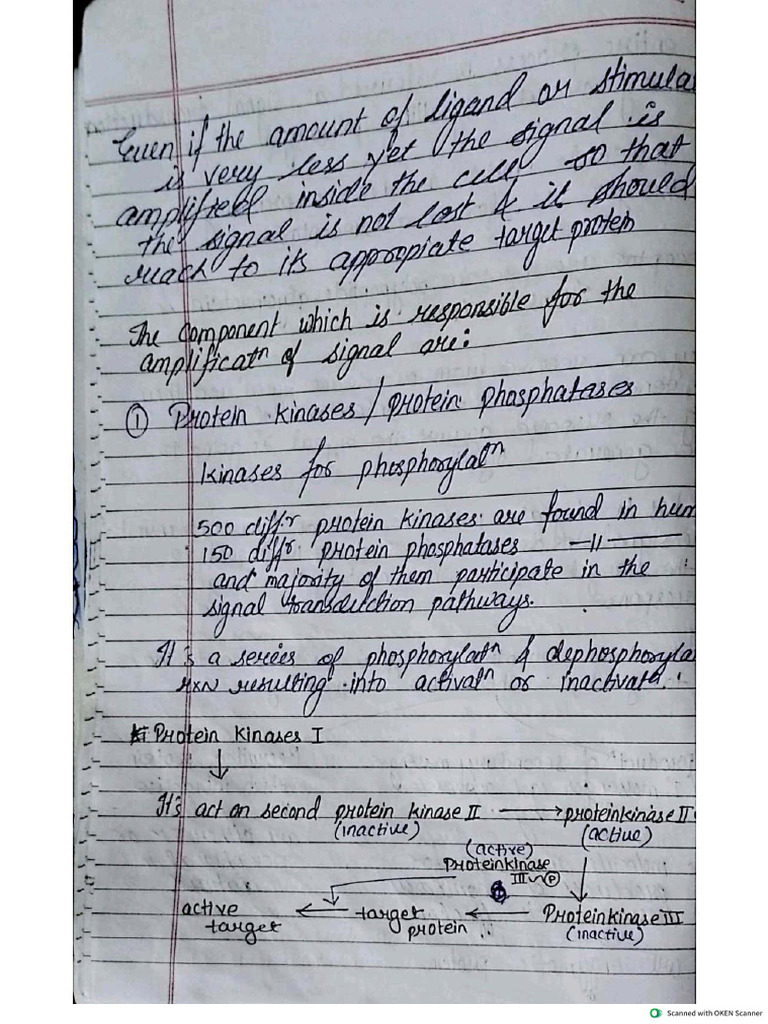 Even if the amount of ligand or stimula
is very less yet the signal is
amplifieel inside the cell so that
the signal is not lost & it should
reach to its appropiate target protein
The component which is responsible for the
amplificatⁿ of signal are:
① Protein kinases / protein phosphatases
kinases for phosphorylatⁿ
500 diff.r protein kinases are found in hum
150 diffr protein phosphatases —11—
and majority of them participate in the
signal transduction pathways.
It's a series of phosphorylatⁿ & dephosphoryla
rxn resulting into activatⁿ or inactivatⁿ.
Protein kinases I
↓
It's act on second protein kinase II ⟶ protein kinase II
(inactive) (active)
(active)
Protein kinase
III~P
active ⟵ target ⟵ Protein kinase III
target protein (inactive)
Scanned with OKEN Scanner